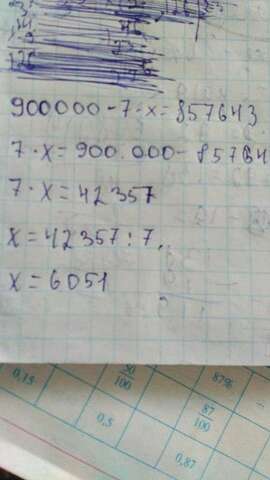 900000 - 7 · x = 857643
7 · x = 900.000 - 85764
7 · x = 42357
x = 42357 : 7
x = 6051
0,15
50/100
87%
0,5
87/100
0,87